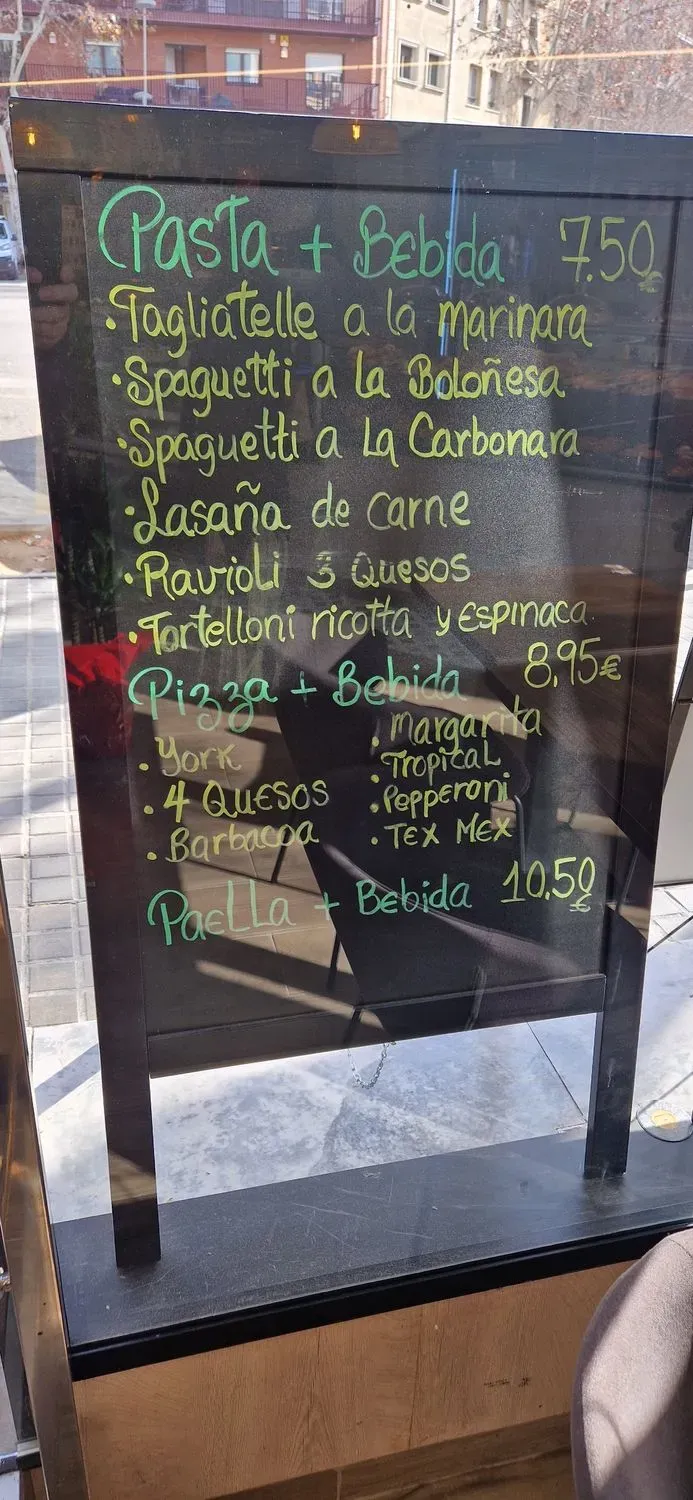 Pasta + Bebida 7.50€
·Tagliatelle a la marinara
·Spaguetti a la Boloñesa
·Spaguetti a la Carbonara
·Lasaña de carne
·Ravioli 3 Quesos
·Tortelloni ricotta y espinaca
Pizza + Bebida 8,95€
·York
·4 Quesos
·Barbacoa
·Margarita
·Tropical
·Pepperoni
·Tex Mex
Paella + Bebida 10.50€